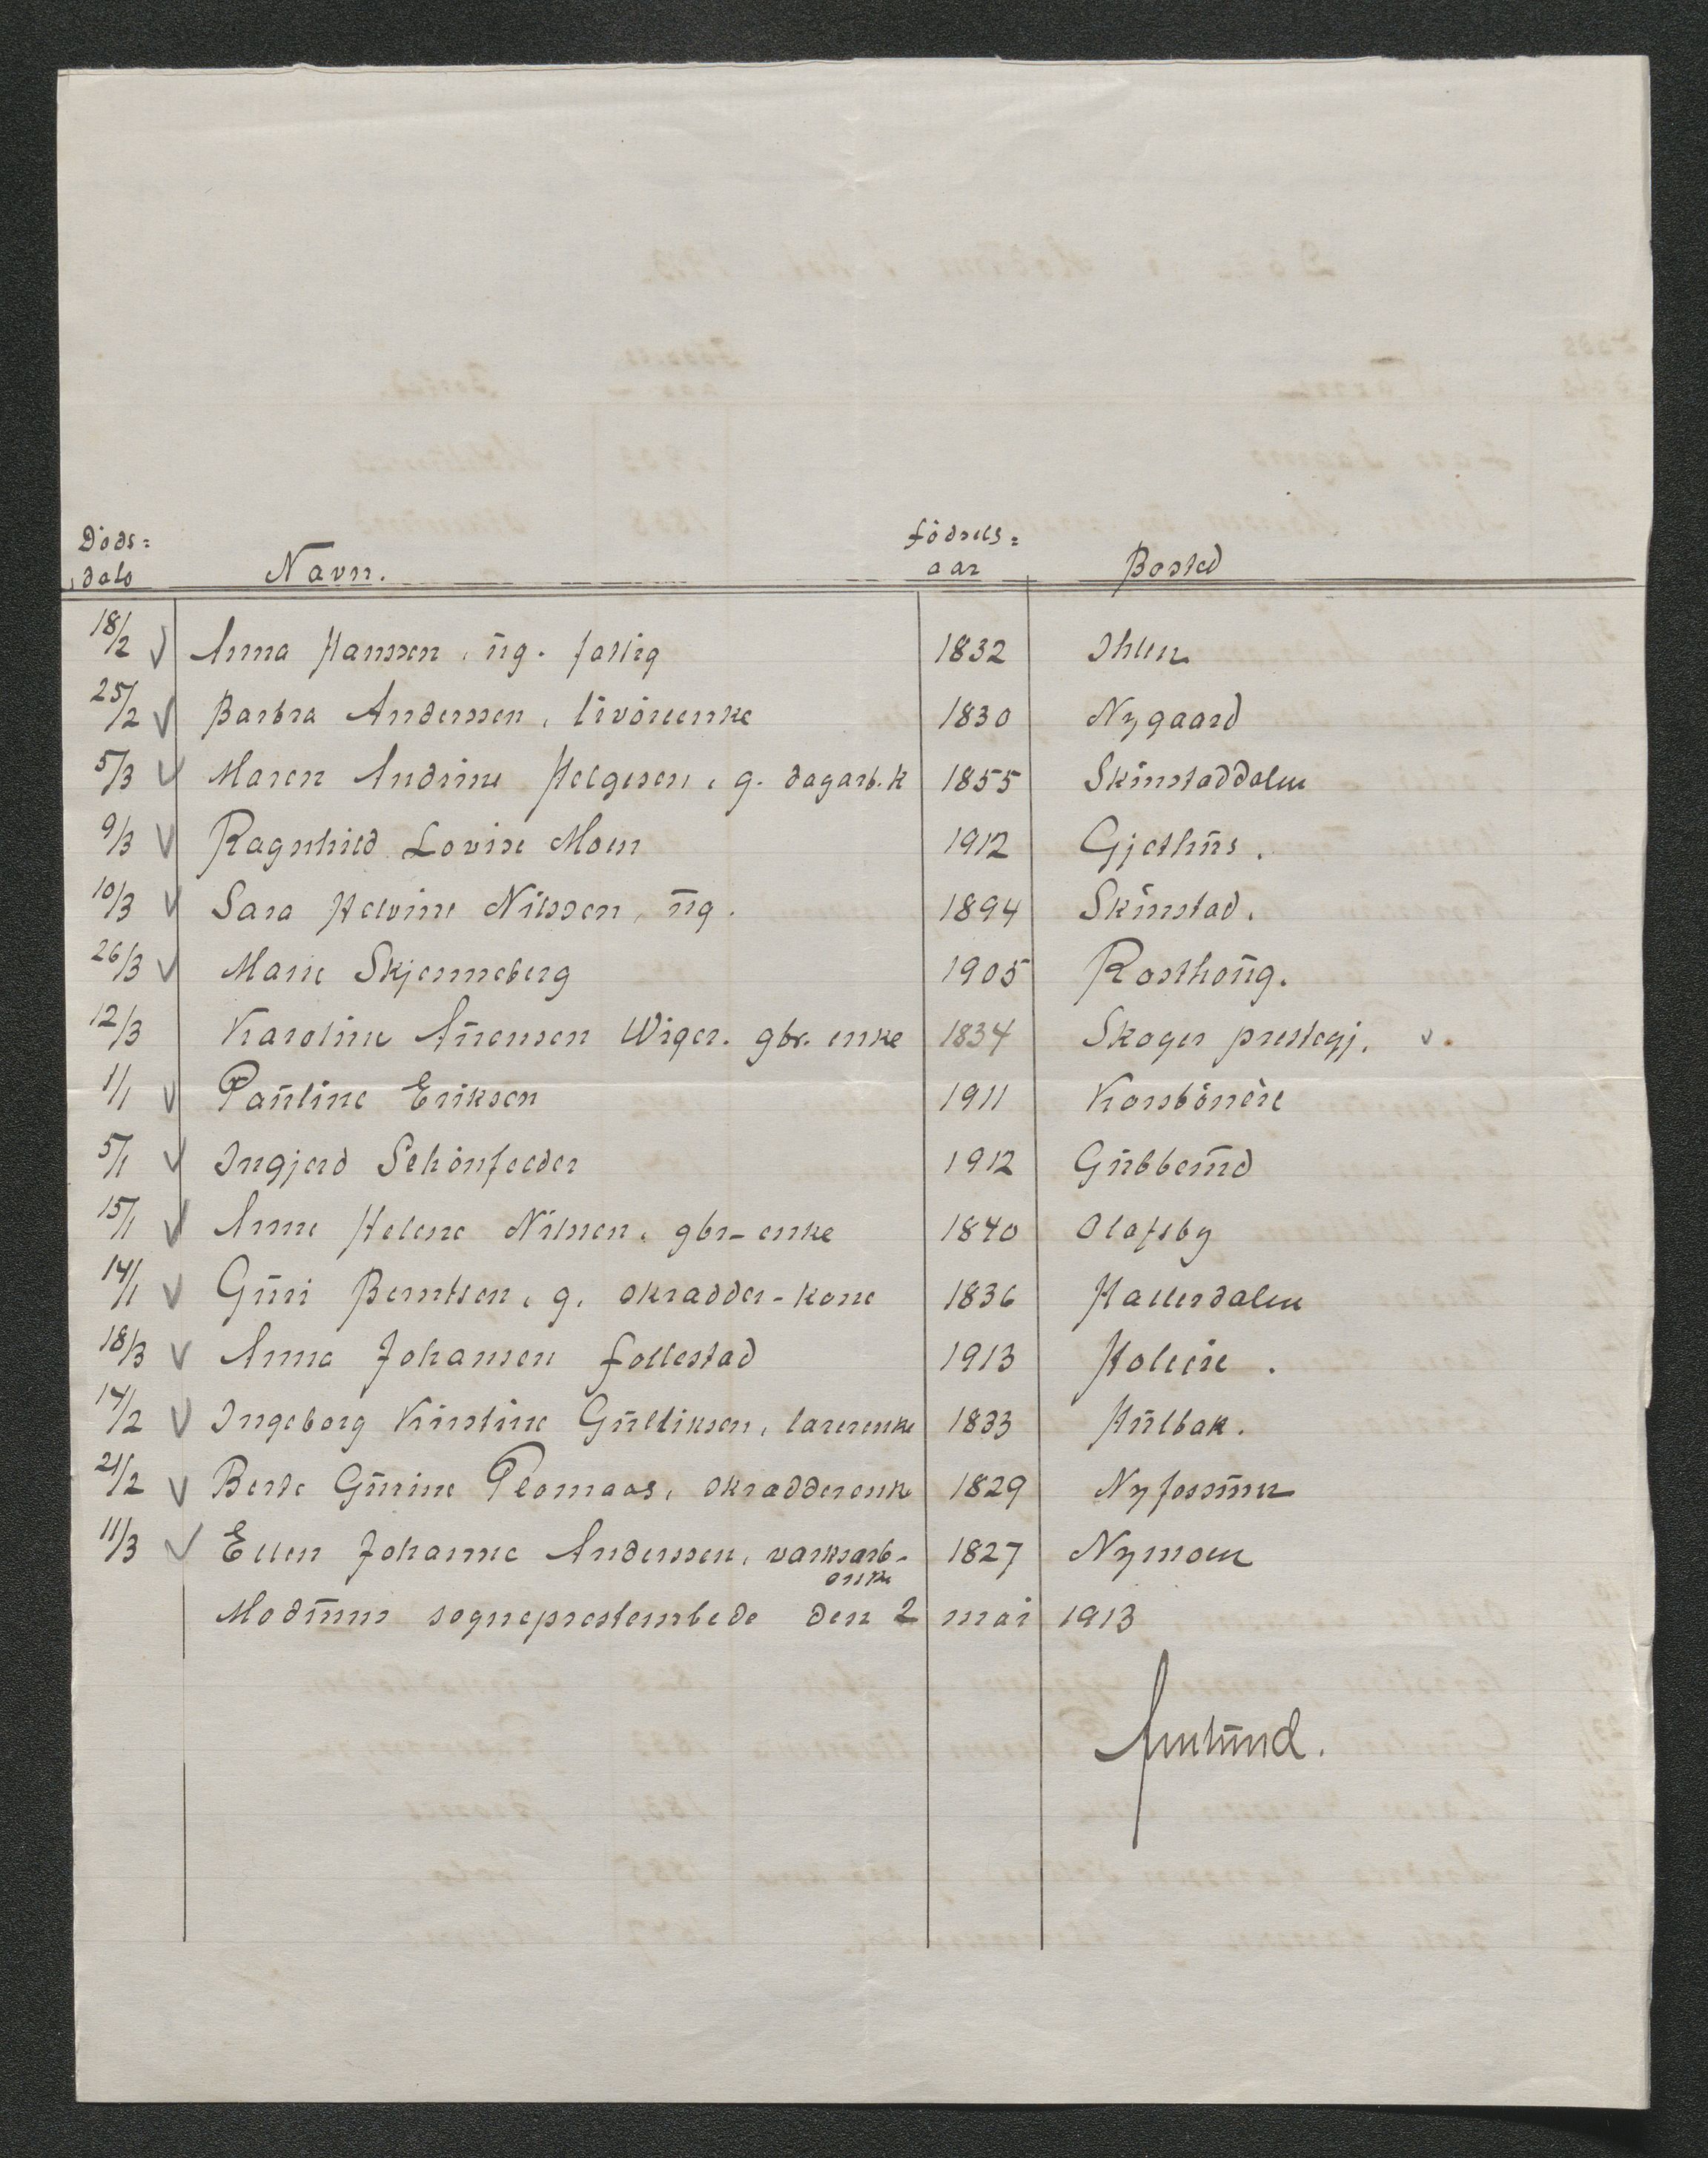 Döds= Födsels=
dato Navn. aar Bosted
18/2 Anna Hanssen, ug. fattig 1832 Ihlen
25/2 Barbra Anderssen, livöreenke 1830 Nygaard
5/3 Maren Andrine Helgesen, g. dagarb.k 1855 Skinstaddalen
9/3 Ragnhild Lovise Moen 1912 Gjethus.
10/3 Sara Helvine Nilssen, ug. 1894 Skinstad.
26/3 Marie Skjenneberg 1905 Rosthoug.
12/3 Karoline Auensen Wiger. gbr. enke 1834 Skoger prestegj. v.
1/1 Pauline Eriksen 1911 Korsböneie
5/1 Ingjerd Schönfelder 1912 Gubberud
15/1 Anne Helene Nilsen, gbr-enke 1840 Olafsby
14/1 Guri Berntsen, g. skrædder-kone 1836 Hallerdalen
18/3 Anna Johansen Follestad 1913 Holeeie.
14/2 Ingeborg Kirstine Gulliksen, lærerenke 1833 Hulbak.
21/2 Berte Gurine Plomaas, skrædderenke 1829 Nyfossum
11/3 Ellen Johanne Anderssen, værksarb- 1827 Nymoen
enke
Modums sogneprestembede den 2 mai 1913